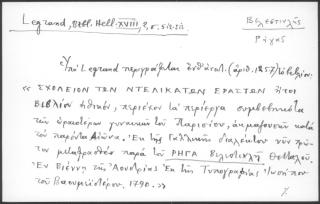 Legrand, Bibl. Hell. XVIII, 2, σ. 512-513
Βελεστινλῆς
Ρήγας
Ὑπὸ Legrand περιγράφεται ἐνθ' ἀνωτ. (ἀριθ. 1257) τὸ βιβλίον.
« ΣΧΟΛΕΙΟΝ ΤΩΝ ΝΤΕΛΙΚΑΤΩΝ ΕΡΑΣΤΩΝ ἤτοι
Βιβλίον ἠθικόν, περιέχον τὰ περίεργα συμβεβηκότα
τῶν ὡραιοτέρων γυναικῶν τοῦ Παρισίου, ἀκμαζουσῶν κατὰ
τὸν παρόντα αἰῶνα. Ἐκ τῆς Γαλλικῆς διαλέκτου νῦν πρῶ-
τον μεταφρασθὲν παρὰ τοῦ ΡΗΓΑ Βελεστινλῆ Θετταλοῦ.
Ἐν Βιέννῃ τῆς Ἀουστρίας Ἐκ τῆς Τυπογραφίας Ἰωσήπου
τοῦ Βαουμεϊστέρου, 1790. »